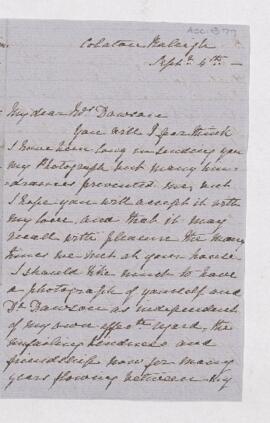 Acc. 1377
Colaton Raleigh
Septr 4th —
My dear Mrs Dawson
You will I fear think
I have been long in sending you
my Photograph but many hin-
drances prevented me, but
I hope you will accept it with
my love and that it may
recall with pleasure the many
times we met at your house
I should like much to have
a photograph of yourself and
Dr Dawson as independent
of my own regard, the
unfailing kindness and
friendship now for many
years flowing between